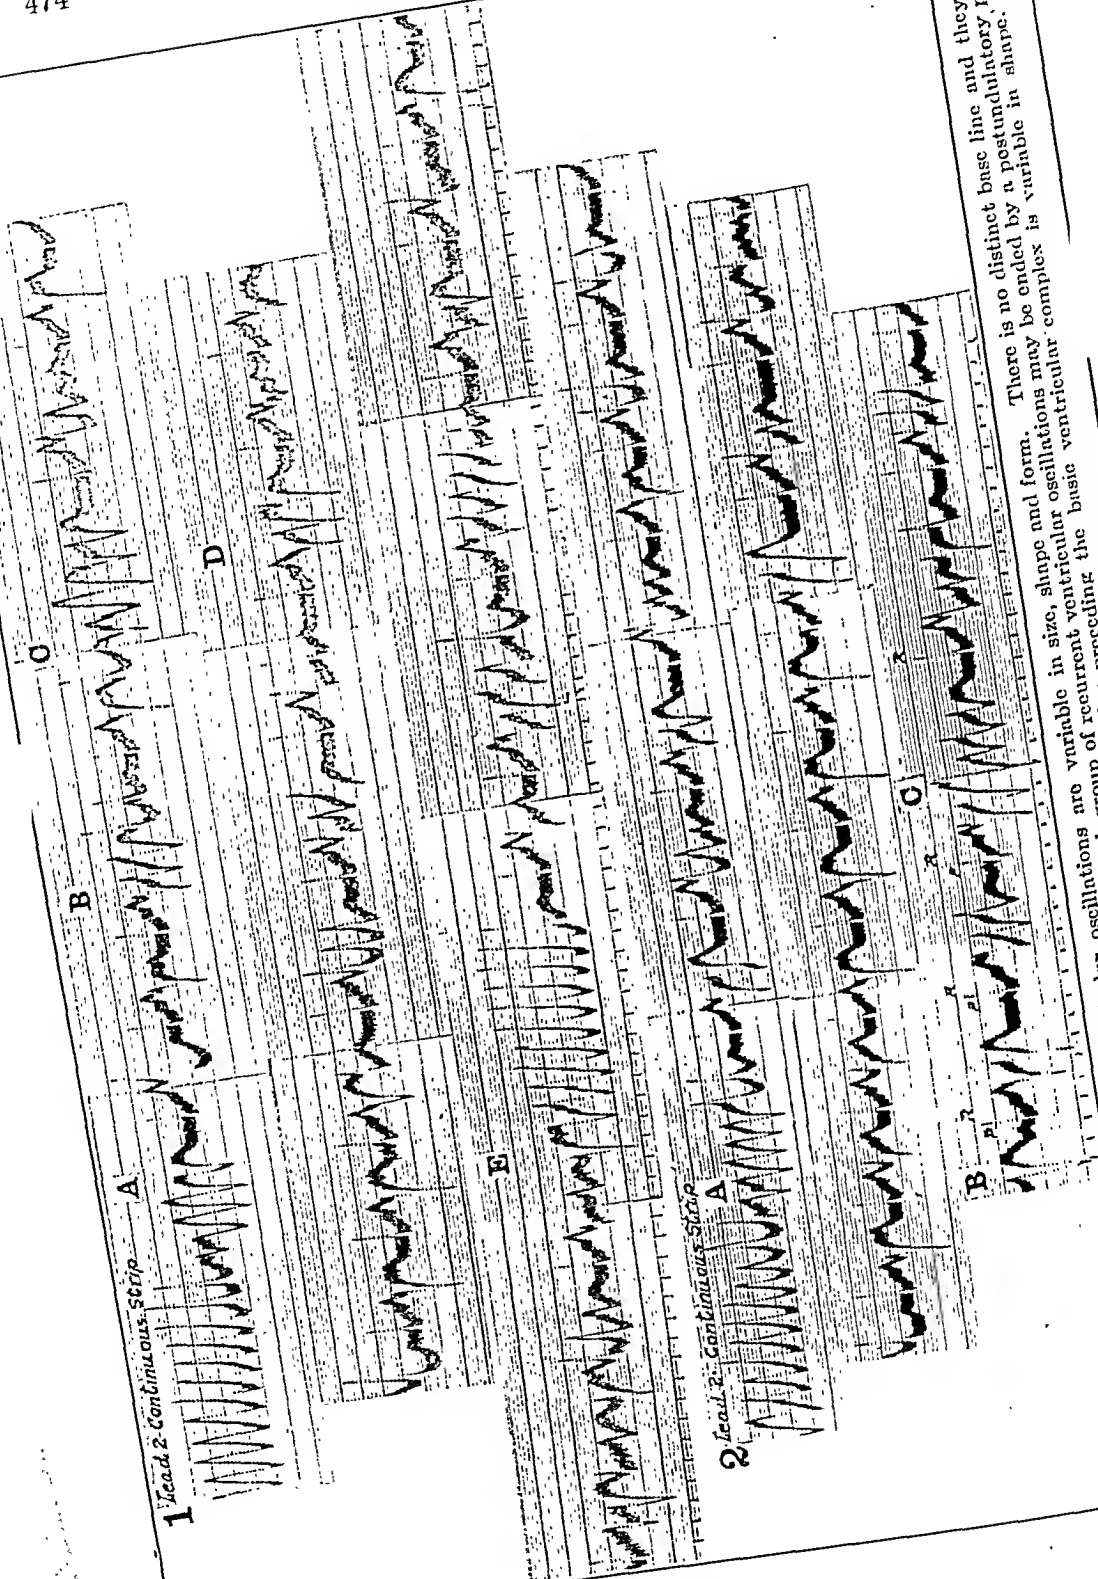 474
1 Lead 2 Continuous strip
A
B
C
D
E
2 Lead 2 Continuous Strip
A
B
C
P1
R
P1
R
P
R
R
oscillations are variable in size, shape and form. There is no distinct base line and they
group of recurrent ventricular oscillations may be ended by a postundulatory
preceding the basic ventricular complex is variable in shape.